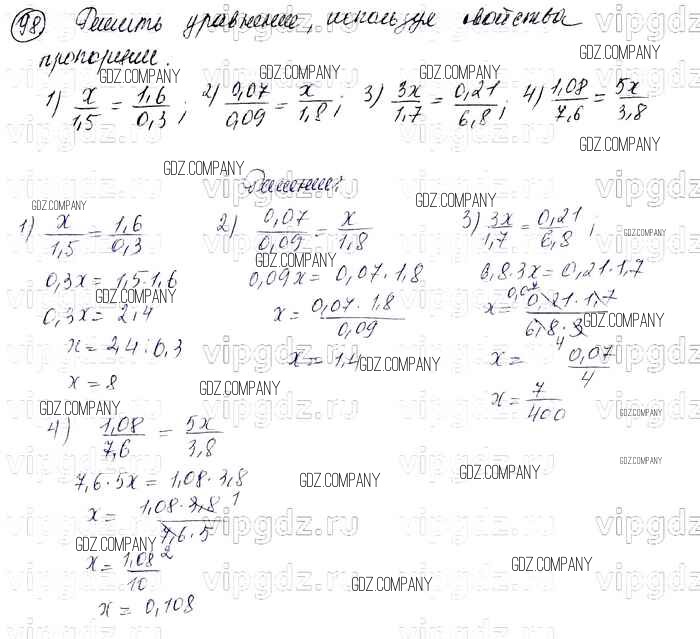 98 Решить уравнение, используя свойства
пропорции.
1) x/1,5 = 1,6/0,3; 2) 0,07/0,09 = x/1,8; 3) 3x/1,7 = 0,21/6,8; 4) 1,08/7,6 = 5x/3,8
Решение:
1) x/1,5 = 1,6/0,3
0,3x = 1,5·1,6
0,3x = 2,4
x = 2,4:0,3
x = 8
2) 0,07/0,09 = x/1,8
0,09x = 0,07·1,8
x = 0,07·1,8/0,09
x = 1,4
3) 3x/1,7 = 0,21/6,8;
6,8·3x = 0,21·1,7
x = 0,21·1,7/6,8·3
x = 0,07/4
x = 7/400
4) 1,08/7,6 = 5x/3,8
7,6·5x = 1,08·3,8
x = 1,08·3,8/7,6·5
x = 1,08/10
x = 0,108
GDZ.COMPANY
vipgdz.ru